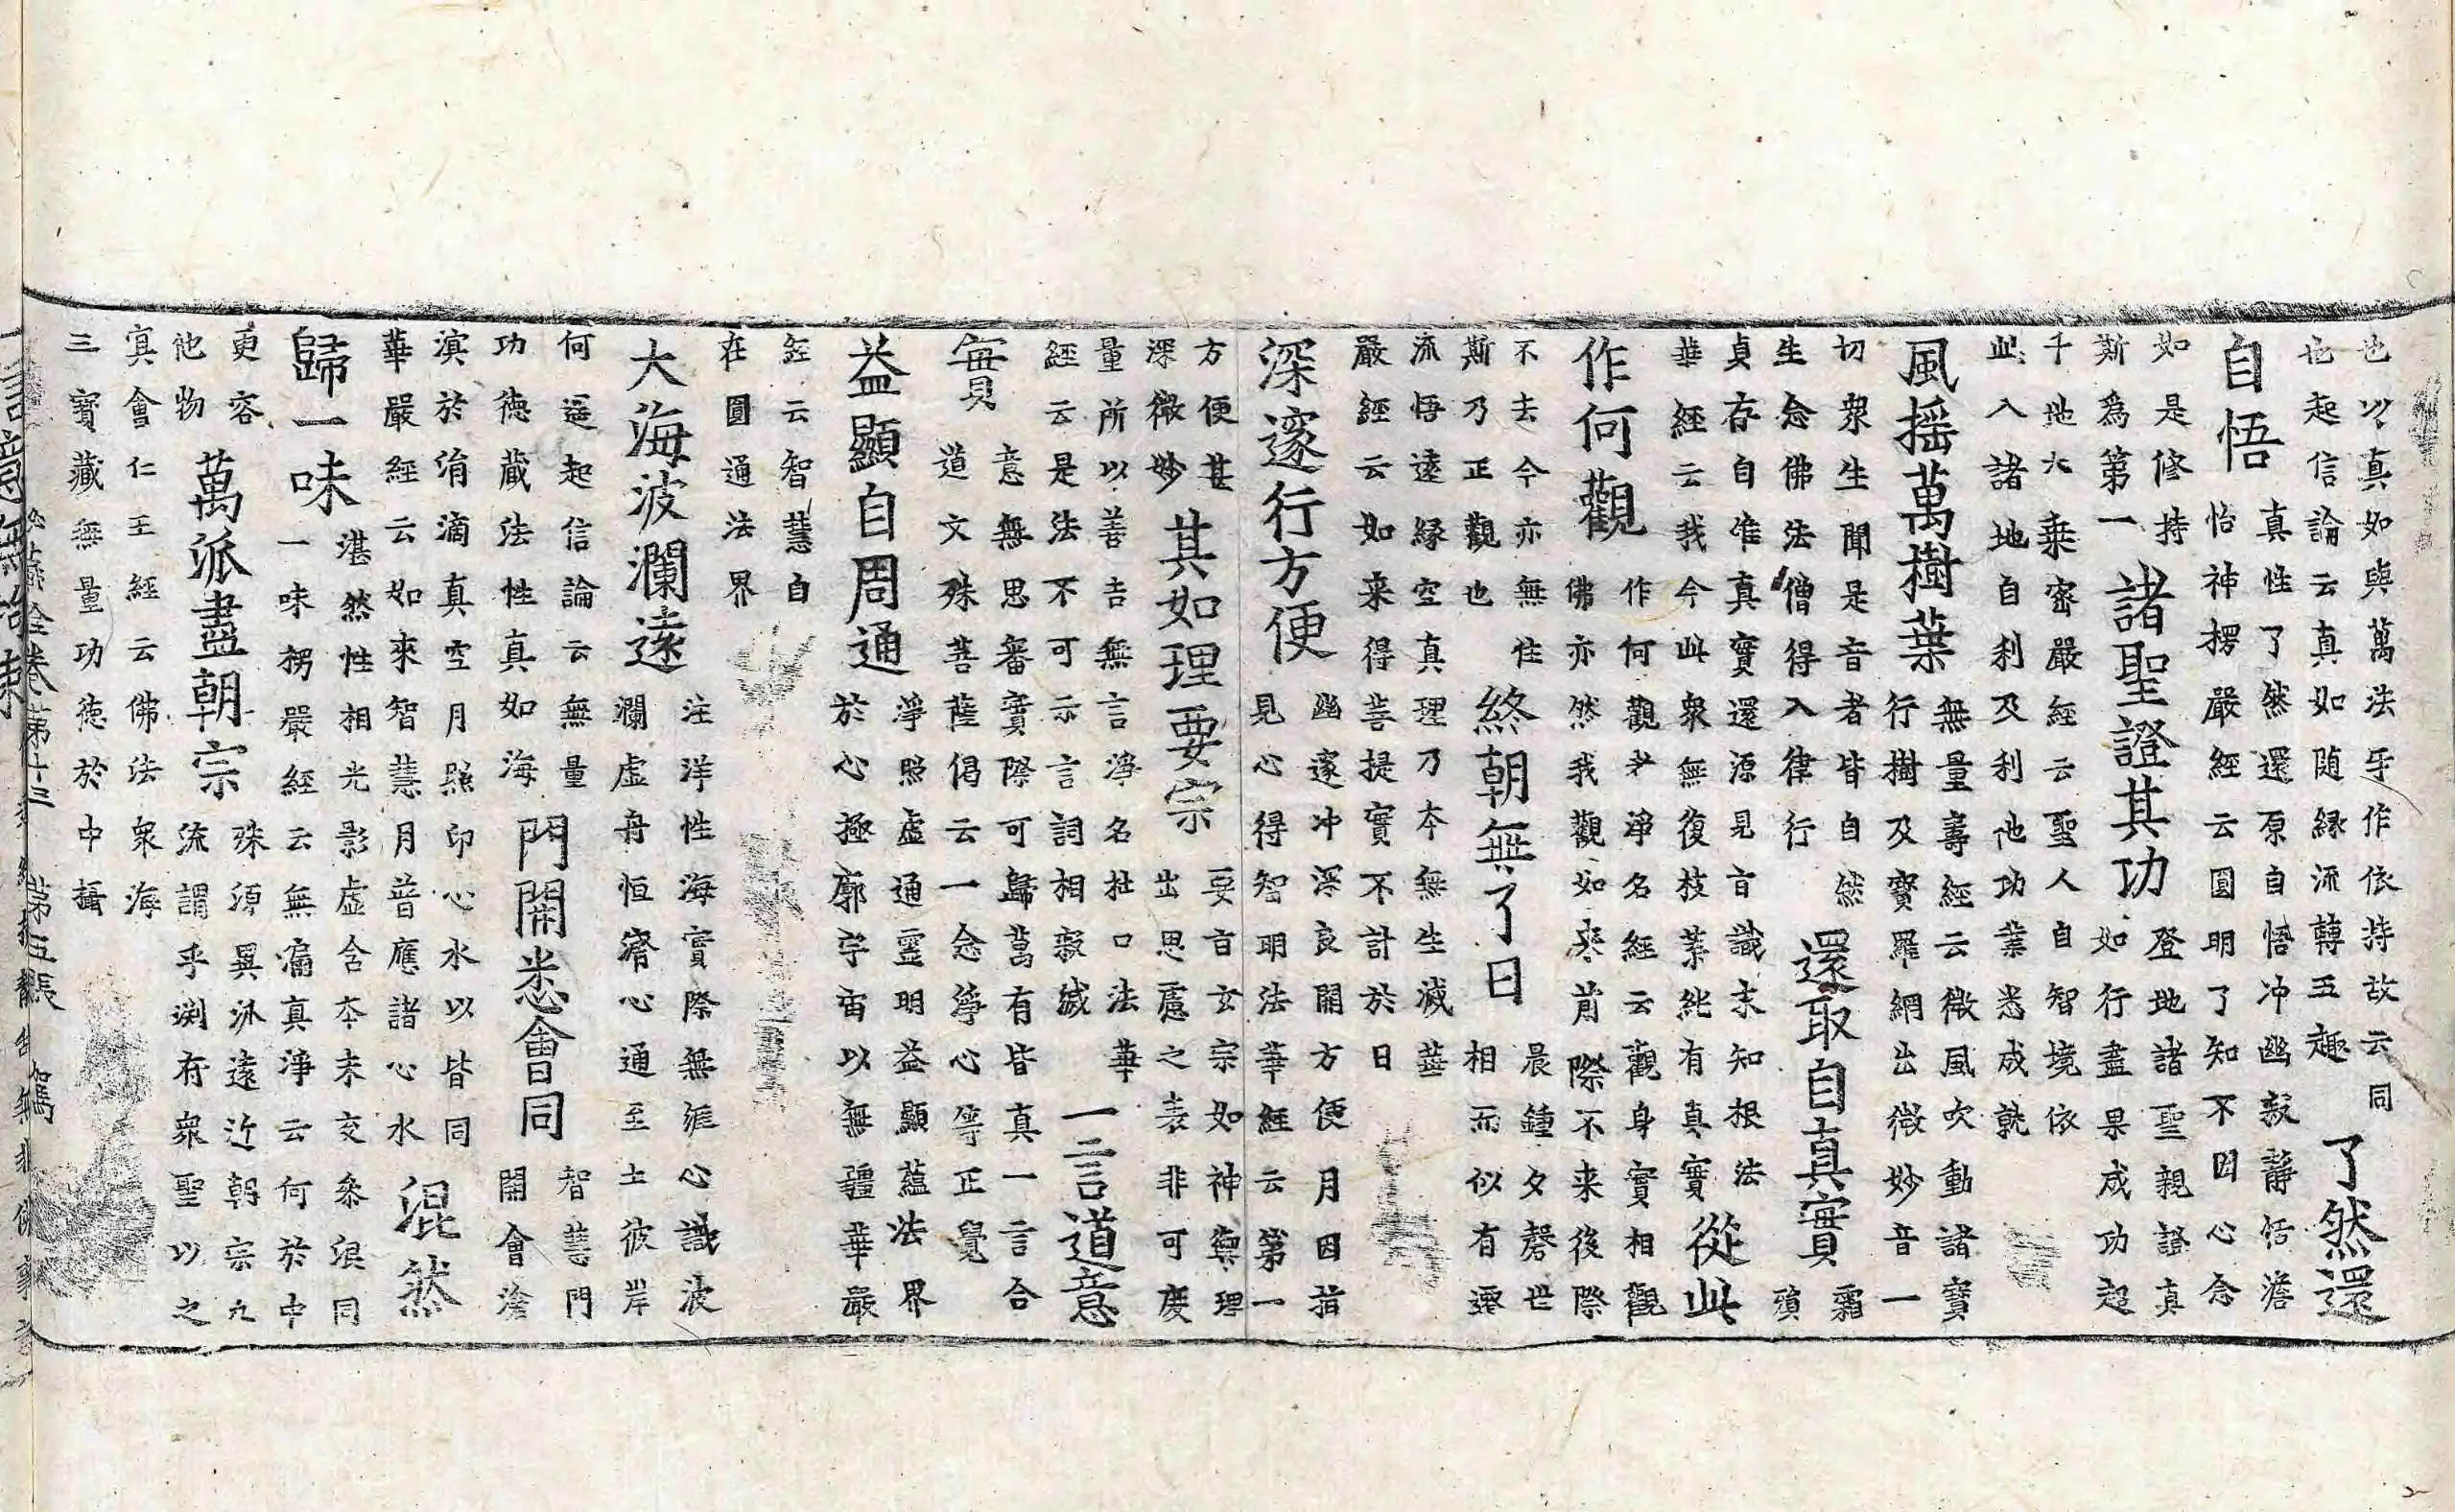 也以真如與萬法乎作依持故云同
也起信論云真如随縁流轉五趣
了然還
自悟
真性了然還原自悟冲幽寂靜恬澹
怡神楞嚴經云圓明了知不因心念
如是修持
斯為第一
諸聖證其功
登地諸聖親證真
如行盡果成功超
千地大乗密嚴經云聖人自智境依
此入諸地自利及利他功業悉成就
風揺萬樹葉
無量壽經云微風吹動諸寶
行樹及寶羅網出微妙音一
切衆生聞是音者皆自然
生念佛法僧得入律行
還取自真實
霜
殞
貞存自唯真實還源見旨識末知根法
華經云我今此衆無復枝葉純有真實
從此
作何觀
作何觀者淨名經云觀身實相觀
佛亦然我觀如來前際不来後際
不去今亦無住
斯乃正觀也
終朝無了日
晨鍾夕磬世
相而似有遷
流悟逺縁空真理乃本無生滅華
嚴經云如来得菩提實不計於日
深邃行方便
幽邃冲深良開方便月因指
見心得智明法華經云第一
方便甚
深微妙
其如理要宗
要旨玄宗如神奥理
出思慮之表非可度
量所以善吉無言淨名杜口法華
經云是法不可示言詞相寂滅
一言道意
實
意無思審實際可歸萬有皆真一言合
道文殊菩薩偈云一念淨心等正覺
益顯自周通
淨照虚通靈明益顯蘊法界
於心極廓宇宙以無疆華嚴
經云智慧自
在圓通法界
大海波瀾逺
注洋性海實際無涯心識波
瀾虚舟恒濟心通至土彼岸
何遥起信論云無量
功徳藏法性真如海
門開悉會同
智慧門
開會滄
溟於涓滴真空月照印心水以皆同
華嚴經云如來智慧月普應諸心水
混然
歸一味
湛然性相光影虚含本末交参混同
一味楞嚴經云無漏真淨云何於中
更容
他物
萬派盡朝宗
殊源異泒逺近朝宗九
流謂乎淵府衆聖以之
寘會仁王經云佛法衆海
三寶藏無量功徳於中攝
詮卷第十三 第五張